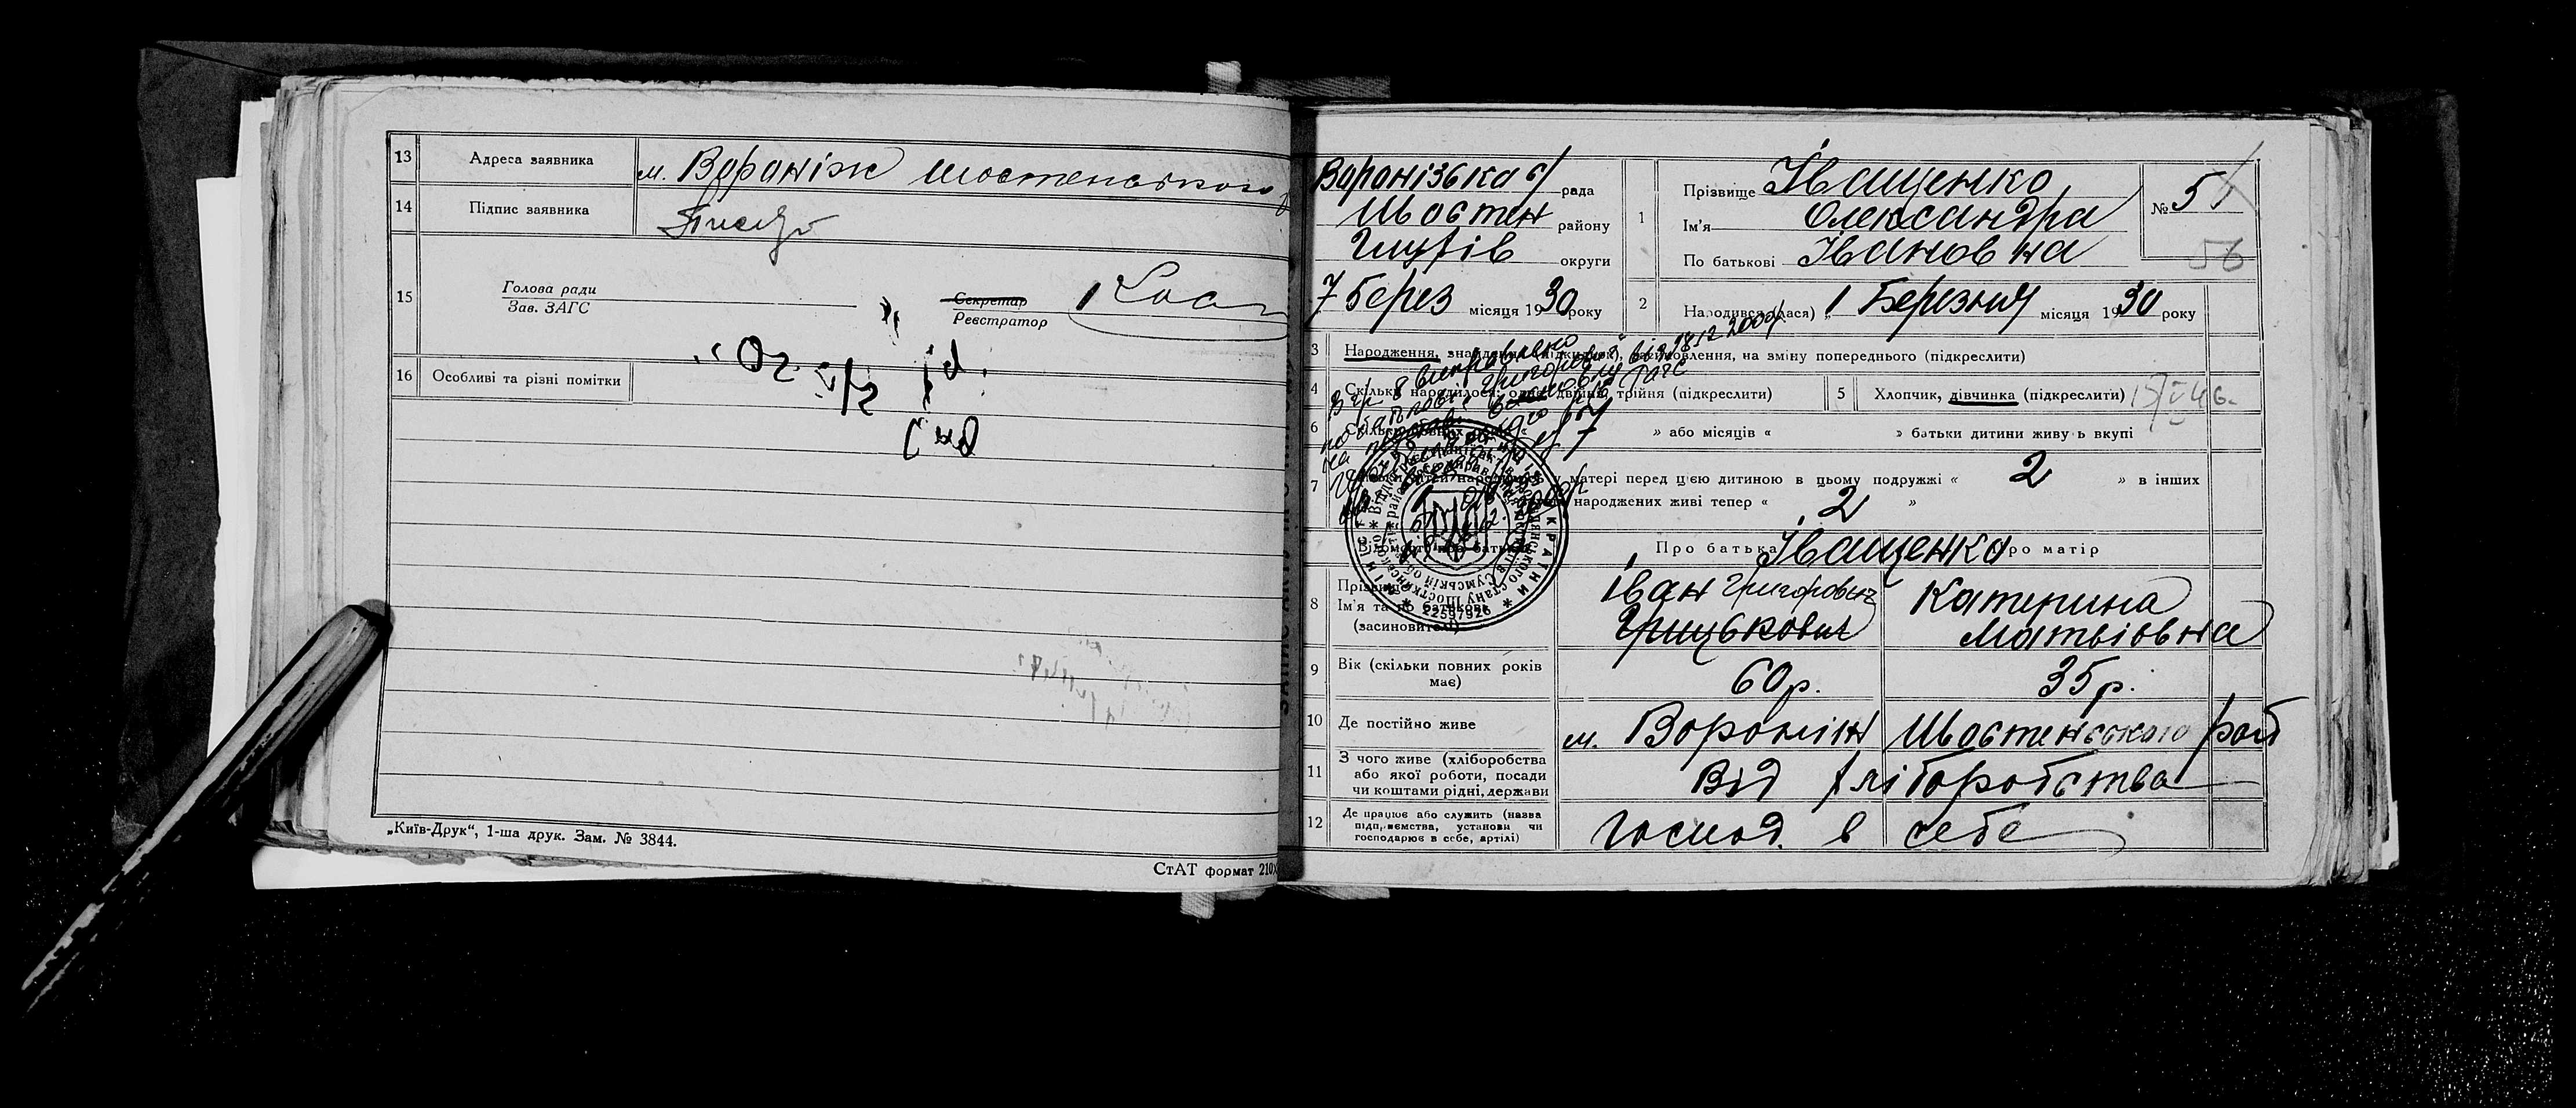 13 Адреса заявника м. Вораніж шостенського
14 Підпис заявника
15 Голова ради
Зав. ЗАГС
Секретар
Реєстратор
16 Особливі та різні помітки
„Київ-Друк“, 1-ша друк. Зам. № 3844.
СтАТ формат 210
Воронізька с/ рада
Шостен району
Глухів округи
7 берез місяця 1930 року
1 Прізвище Іващенко
Ім'я Олександра
По батькові Івановна
№ 5
56
2 Народився(лася) „1 Березня місяця 1930 року
3 Народження, знайдення (підкидьок), засиновлення, на зміну попереднього (підкреслити)
4 Скільки народилося: одно, двійня, трійня (підкреслити)
5 Хлопчик, дівчинка (підкреслити)
6 » або місяців « » батьки дитини живу ь вкупі
7 матері перед цією дитиною в цьому подружжі « 2 » в інших
народжених живі тепер « 2 »
Про батька Іващенко ро матір
8 Прізвище
Ім'я та по батькові
(засиновителі)
Іван Григорович
Грицькович
Катерина
Матвіовна
22597926
9 Вік (скільки повних років має) 60 р. 35 р.
10 Де постійно живе м. Вороніж Шостенського рай
11 З чого живе (хліборобства
або якої роботи, посади
чи коштами рідні, держави
Від хліборобства
12 Де працює або служить (назва
підприємства, установи чи
господарює в себе, артілі)
господ. в себе